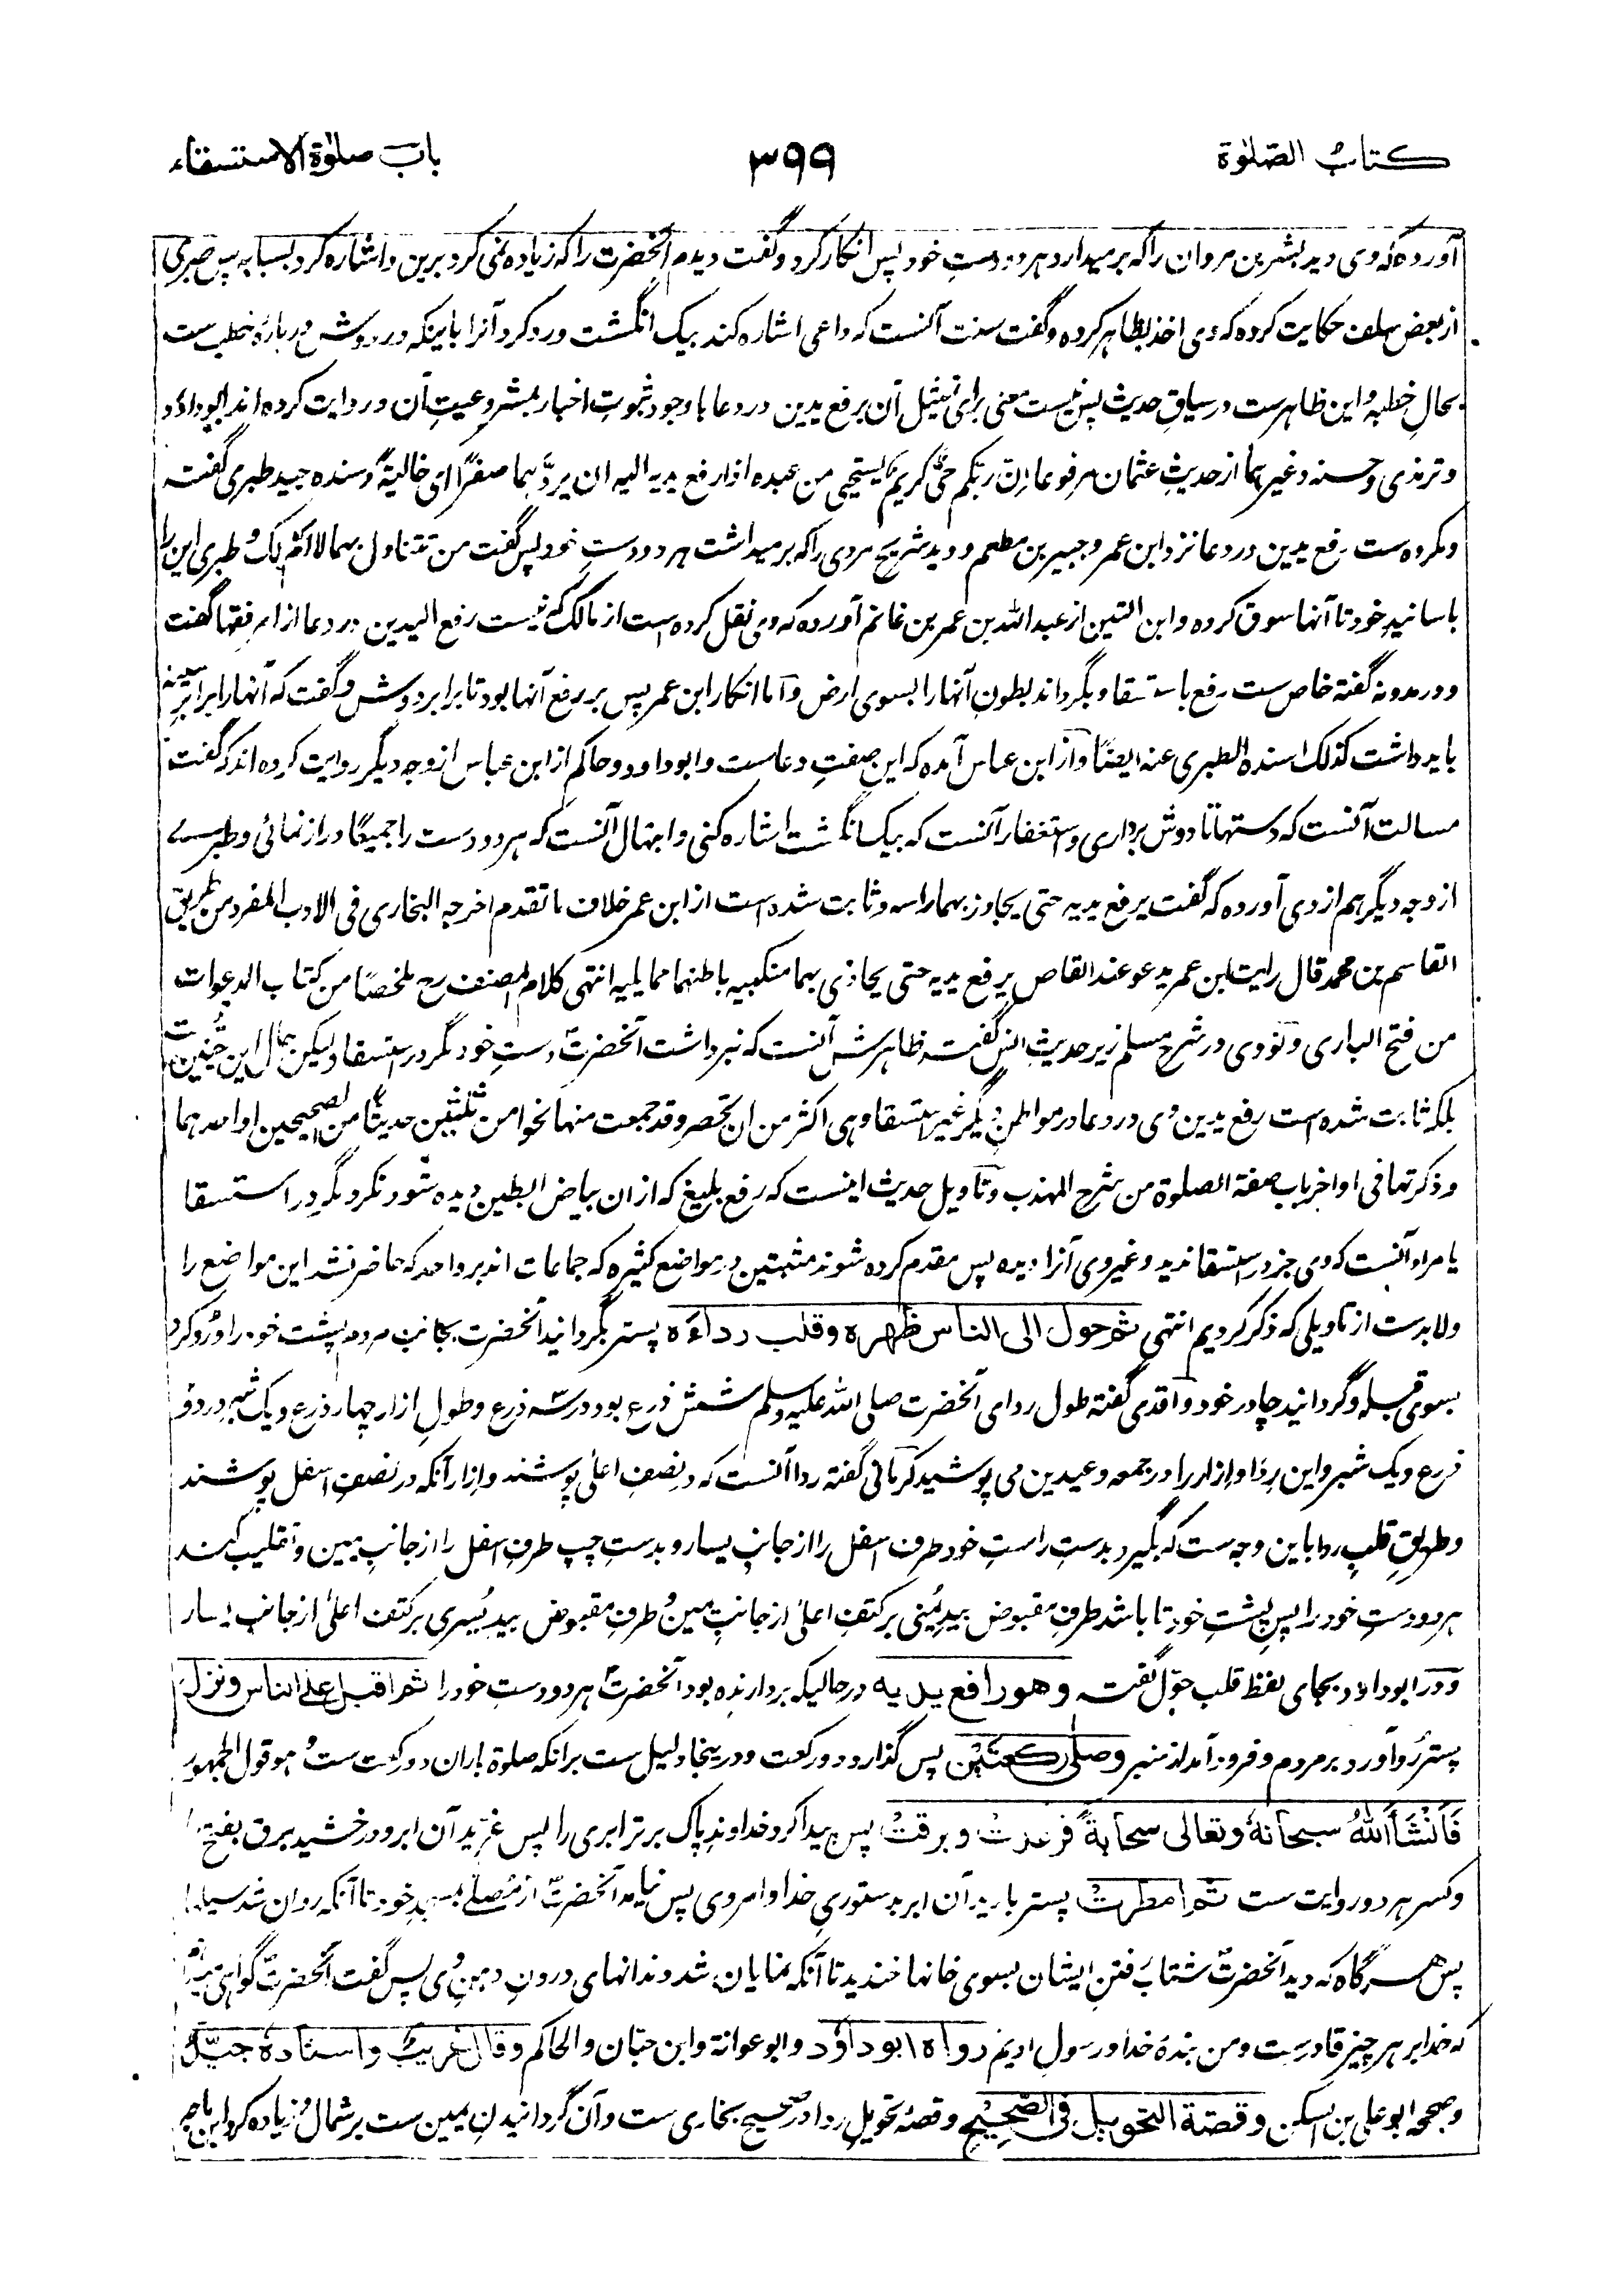 كتاب الصلوٰة
٣٩٩
باب صلوٰة الاستسقاء
آورده که وی دید بشر بن مروان را که برمیدارد هر دو دست خود پس انکار کرد و گفت دیدم آنحضرت را که زیاده نمی کرد برین و اشاره کرد بسبابه پس طبری
از بعض سلف حکایت کرده که وی اخذ بظاهر کرده و گفت سنت آنست که داعی اشاره کند بیک انگشت و رد کرد آنرا باینکه ورودش درباره خطیب ست
بحالِ خطبه و این ظاهرست در سیاقِ حدیث پس نیست معنی برای تمثیل آن برفع یدین در دعا با وجود ثبوتِ اخبار بمشروعیتِ آن و روایت کرده اند ابوداؤد
و ترمذی و حسنه و غیرهما از حدیثِ عثمان مرفوعا ان ربکم حیّ کریم یستحیی من عبده اذا رفع یدیه الیه ان یردّهما صفرًا ای خالیة و سنده جید طبری گفته
و مکروه ست رفع یدین در دعا نزد ابن عمر و جبیر بن مطعم و دید شریح مردی را که برمیداشت هر دو دستِ خود پس گفت من تتناول بهما لا ام لک و طبری این را
باسانید خود تا آنها سوق کرده و ابن التین از عبدالله بن عمر بن غانم آورده که وی نقل کرده است از مالک که نیست رفع الیدین در دعا از امر فقها گفت
و در مدونه گفته خاص ست رفع باستسقا و بگرداند بطونِ آنها را بسوی ارض و اما انکار ابن عمر پس بر رفع آنها بود تا برابر دوش و گفت که آنها را برابر سینه
باید داشت کذلک اسنده الطبری عنه ایضًا و از ابن عباس آمده که این صفتِ دعاست و ابوداود و حاکم از ابن عباس از وجه دیگر روایت کرده اند که گفت
مسالت آنست که دستها تا دوش برداری و استغفار آنست که بیک انگشت اشاره کنی و ابتهال آنست که هر دو دست را جمیعًا دراز نمائی و طبری
از وجه دیگر هم از وی آورده که گفت یرفع یدیه حتی یجاوز بهما راسه و ثابت شده است از ابن عمر خلاف ما تقدم اخرجه البخاری فی الادب المفرد من طریق
القاسم بن محمد قال رایت ابن عمر یدعو عند القاص یرفع یدیه حتی یحاذی بهما منکبیه باطنهما مما یلیه انتهی کلام المصنف رح ملخصًا من کتاب الدعوات
من فتح الباری و نووی در شرح مسلم زیر حدیث انس گفته ظاهرش آنست که نبرداشت آنحضرتؐ دستِ خود مگر در استسقا و لیکن حال این چنین نیست
بلکه ثابت شده است رفع یدین وی در دعا در مواطن دیگر غیر استسقا و هی اکثر من ان تحصر و قد جمعت منها نحوا من ثلثین حدیثًا من الصحیحین او احدهما
و ذکرتها فی اواخر باب صفة الصلوة من شرح المهذب و تاویل حدیث اینست که رفع بلیغ که ازان بیاض ابطین دیده شود نکرد مگر در استسقا
یا مراد آنست که وی جز در استسقا ندید و غیر وی آنرا دیده پس مقدم کرده شوند مثبتین در مواضع کثیره که جماعات اند بر واحد که حاضر نشد این مواضع را
و لابدست از تاویلی که ذکر کردیم انتهی ثم حول الی الناس ظهره و قلب رداءه پستر بگردانید آنحضرت بجانب مردم پشت خود را و رو کرد
بسوی قبله و گردانید چادر خود واقدی گفته طول ردای آنحضرت صلی الله علیه وسلم شش ذرع بود در سه ذرع و طولِ ازار چهار ذرع و یک شبر در دو
ذرع و یک شبر و این ردا و ازار را در جمعه و عیدین می پوشید کرمانی گفته ردا آنست که در نصف اعلی پوشند و ازار آنکه در نصفِ اسفل پوشند
و طریقِ قلبِ ردا باین وجه ست که بگیرد بدستِ راستِ خود طرف اسفل را از جانبِ یسار و بدستِ چپ طرفِ اسفل را از جانبِ یمین و تقلیب کند
هر دو دستِ خود را پسِ پشتِ خود تا باشد طرفِ مقبوض بید یُمنی بر کتفِ اعلی از جانبِ یمین و طرفِ مقبوض بید یُسری بر کتف اعلی از جانبِ یسار
و در ابوداود بجای لفظ قلب حوّل گفته و هو رافع یدیه در حالیکه بردارنده بود آنحضرتؐ هر دو دستِ خود را ثم اقبل علی الناس و نزل
پستر رو آورد بر مردم و فرود آمد از منبر و صلی رکعتین پس گذارد دو رکعت و درینجا دلیل ست برانکه صلوة باران دو رکعت ست و هو قول الجمهور
فَاَنْشَأَ اللهُ سبحانهٗ و تعالی سحابةً فرعدت و برقت پس پیدا کرد خداوندِ پاک برتر ابری را پس غرّید آن ابر و درخشید برق بفتح را
و کسر هر دو روایت ست ثم امطرت پستر بارید آن ابر بدستوریِ خدا و امر وی پس نیامد آنحضرتؐ از مصلی بمسجد خود تا آنکه روان شد سیلها
پس هرگاه که دید آنحضرتؐ شتاب رفتنِ ایشان بسوی خانها خندید تا آنکه نمایان شد دندانهای درونِ دهن وی پس گفت آنحضرتؐ گواهی میدهم
که خدا بر هر چیز قادرست و من بندهٔ خدا و رسولِ اویم رواه ابو داؤد و ابوعوانة و ابن حبّان و الحاکم و قال غریب و اسناده جیّد
و صححه ابوعلی بن السکن و قصّة التحویل فی الصّحیح و قصهٔ تحویلِ ردا در صحیح بخاری ست و آن گردانیدنِ یمین ست بر شمال و زیاده کرد ابن ماجه